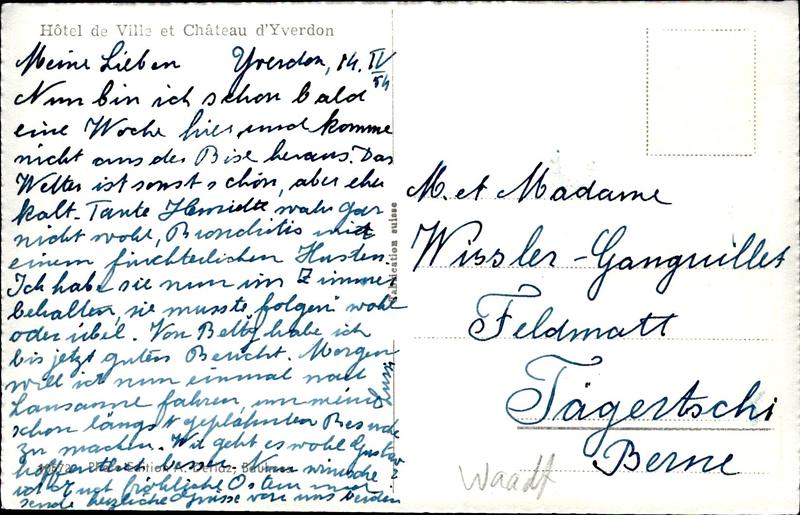 Hôtel de Ville et Château d'Yverdon
Meine Lieben Yverdon, 14. IV 54
Nun bin ich schon bald
eine Woche hier, und komme
nicht aus der Bise heraus. Das
Wetter ist sonst schön, aber eher
kalt. Tante Henriette wahr gar
nicht wohl, Bronchitis mit
einem fürchterlichen Husten.
Ich habe sie nun im Zimmer
behalten, sie musste "folgen" wohl
oder übel. Von Betty habe ich
bis jetzt guten Bericht. Morgen
will ich nun einmal nach
Lausanne fahren, um meine
schon längst geplanten Besuche
zu machen. Wie geht es wohl Gustav
hoffentlich besser. Nun wünsche
ich Euch fröhliche Ostern und
sende herzliche Grüsse von uns beiden
Photo-Edition A. Deriaz, Baulmes
Fabrication suisse
M. et Madame
Wissler-Ganguillet
Feldmatt
Tägertschi
Berne
Waadt